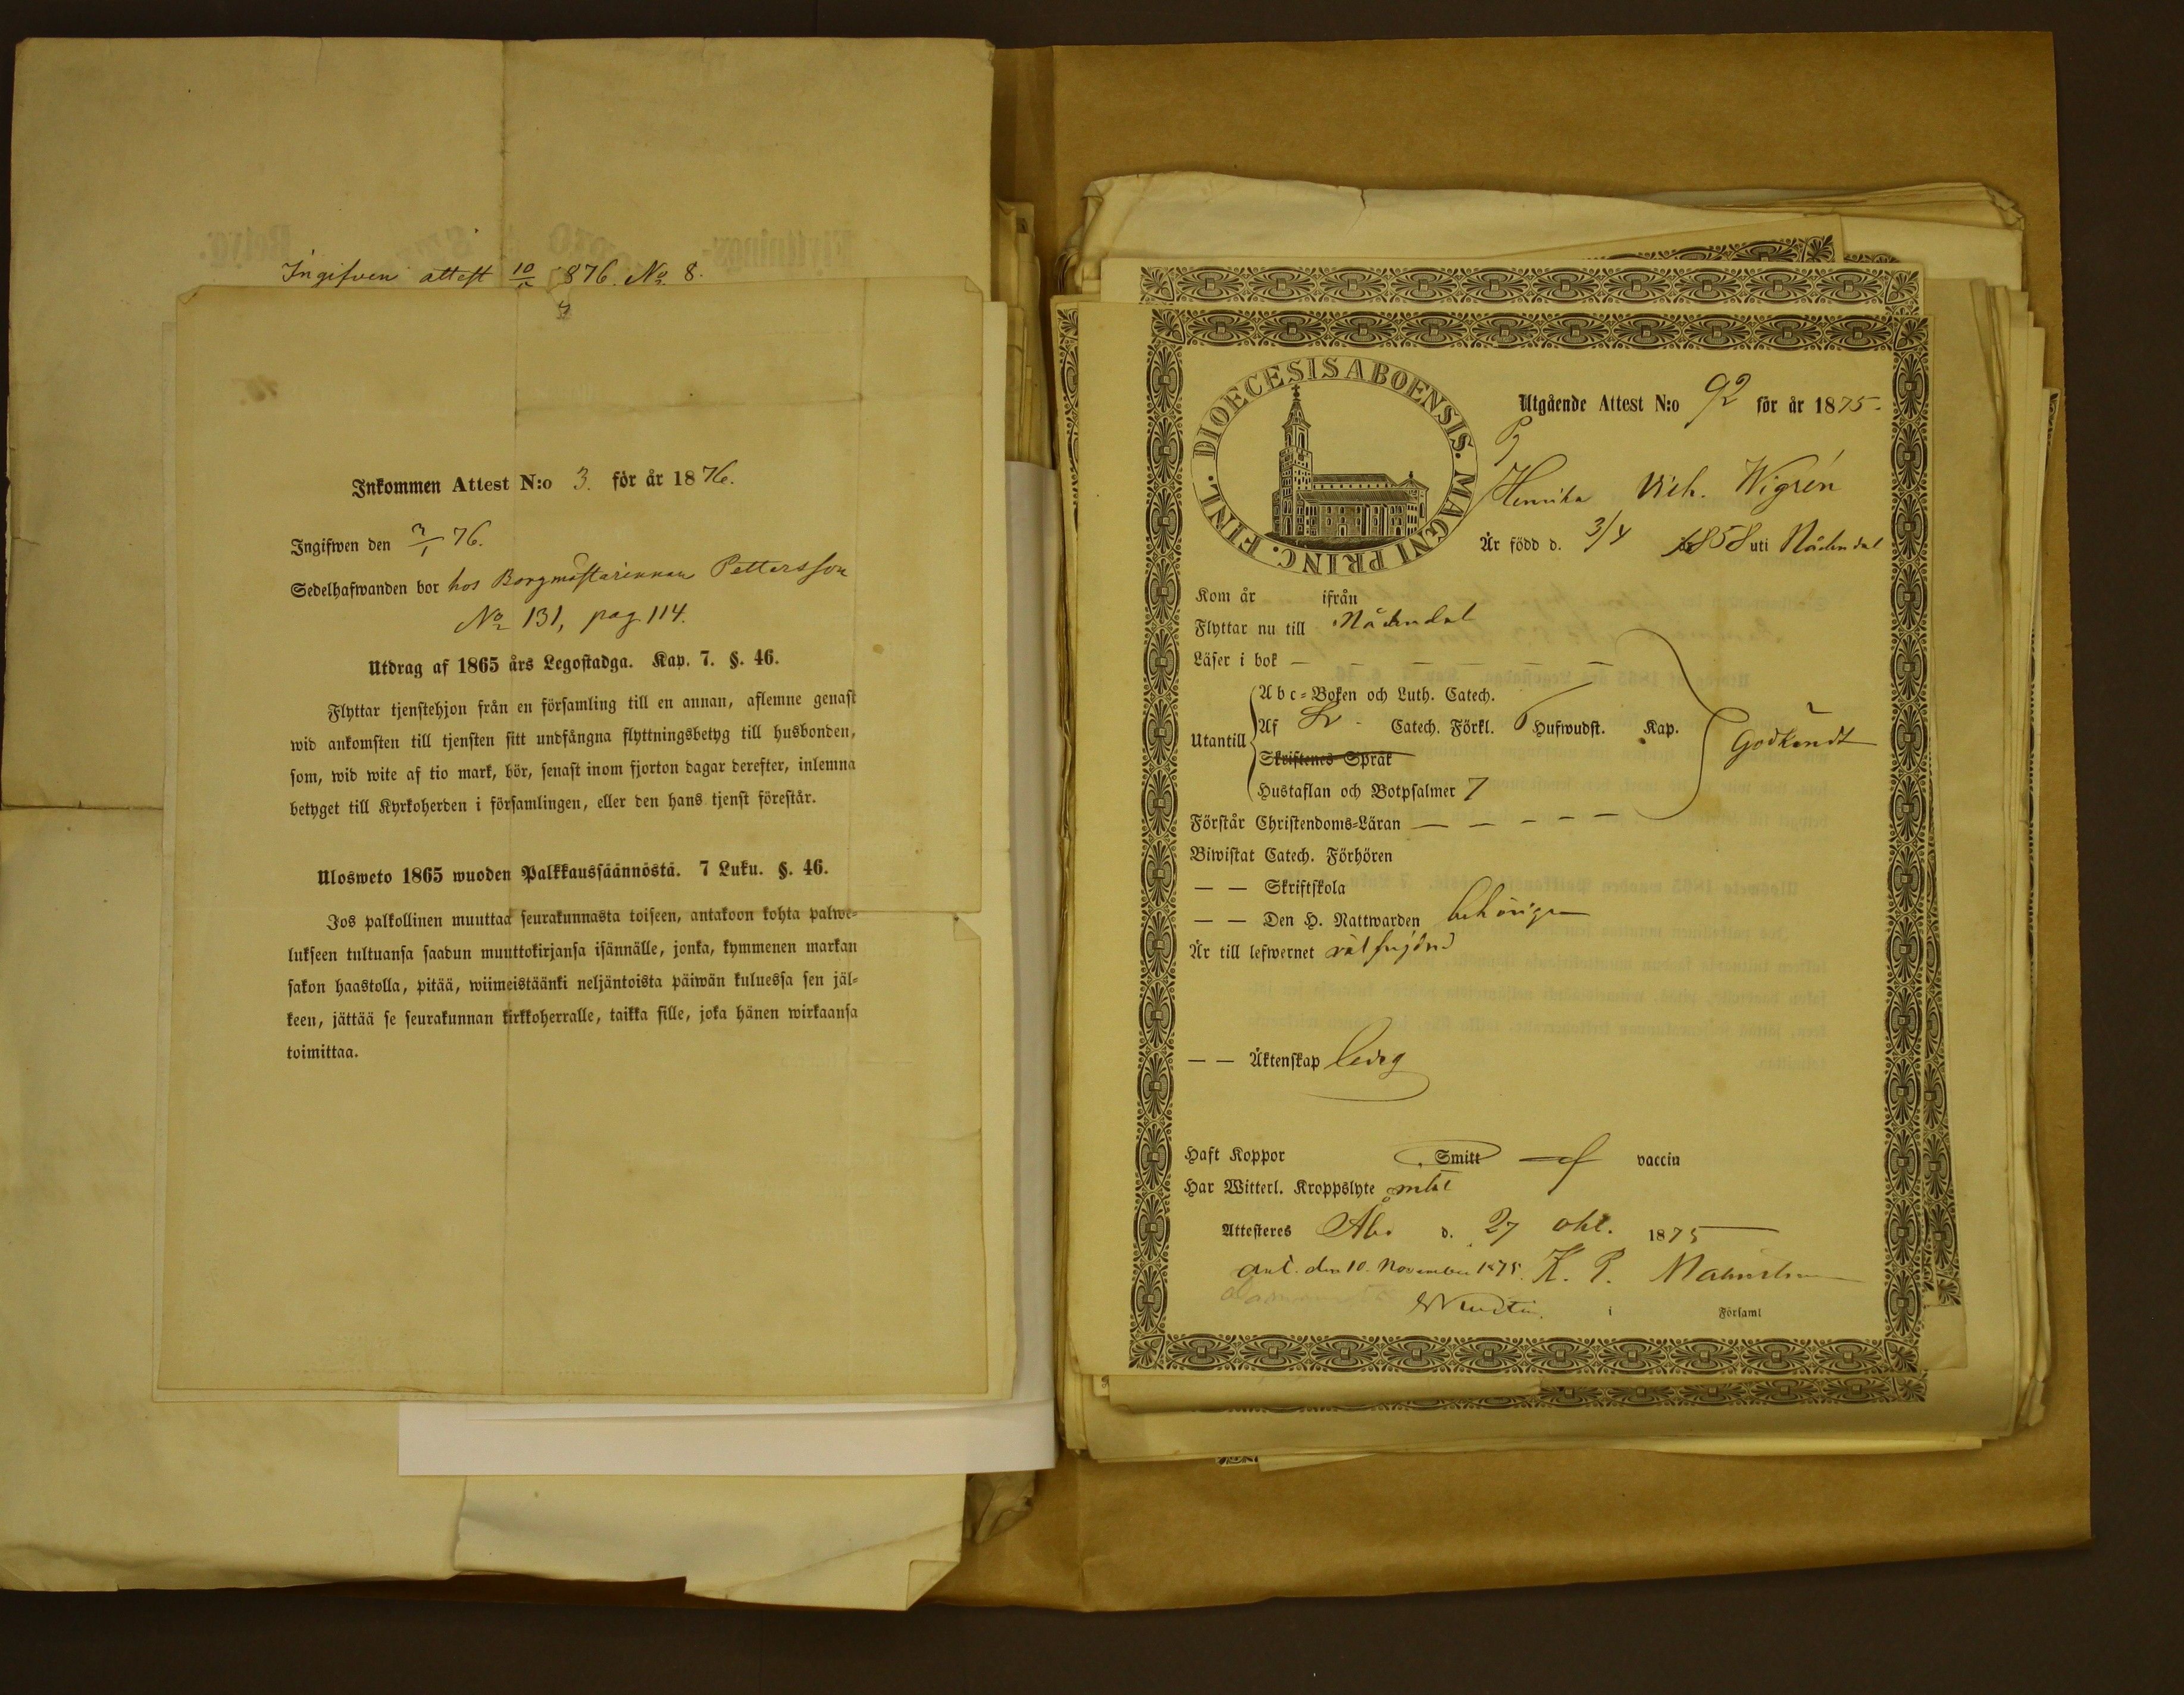 Ingifven attest 10 1876. No 8.
Inkommen Attest N:o 3. för år 1876.
Ingifwen den 3/1 76.
Sedelhafwanden bor hos Borgmästarinnan Pettersson
No 131, pag 114.
Utdrag af 1865 års Legostadga. Kap. 7. §. 46.
Flyttar tjenstehjon från en församling till en annan, aflemne genast
wid ankomsten till tjensten sitt undfångna flyttningsbetyg till husbonden,
som, wid wite af tio mark, bör, senast inom fjorton dagar derefter, inlemna
betyget till Kyrkoherden i församlingen, eller den hans tjenst förestår.
Ulosweto 1865 wuoden Palkkaussäännöstä. 7 Luku. §. 46.
Jos palkollinen muuttaa seurakunnasta toiseen, antakoon kohta palwe=
lukseen tultuansa saadun muuttokirjansa isännälle, jonka, kymmenen markan
sakon haastolla, pitää, wiimeistäänki neljäntoista päiwän kuluessa sen jäl=
keen, jättää se seurakunnan kirkkoherralle, taikka sille, joka hänen wirkaansa
toimittaa.
DIOECESIS ABOENSIS. MAGNI PRINC. FINL.
Utgående Attest N:o 92 för år 1875.
Henrika Vilh. Wigrén
Är född d. 3/4 1858 uti Nådendal
Kom år ifrån
Flyttar nu till Nådendal
Läser i bok — — — — — —
Utantill
Abc=Boken och Luth. Catech.
Af Sv. Catech. Förkl. Hufwudst. Kap.
Skriftenes Språk
Hustaflan och Botpsalmer 7
Godkändt
Förstår Christendoms=Läran — — — — —
Biwistat Catech. Förhören
— — Skriftskola
— — Den H. Nattwarden behörigen
Är till lefwernet välfrejdad
— — Äktenskap ledig
Haft Koppor Smitt vaccin
Har Witterl. Kroppslyte
Attesteres Åbo d. 27 okt. 1875
ant. den 10. November 1875. K. P. Malmström
i Församl